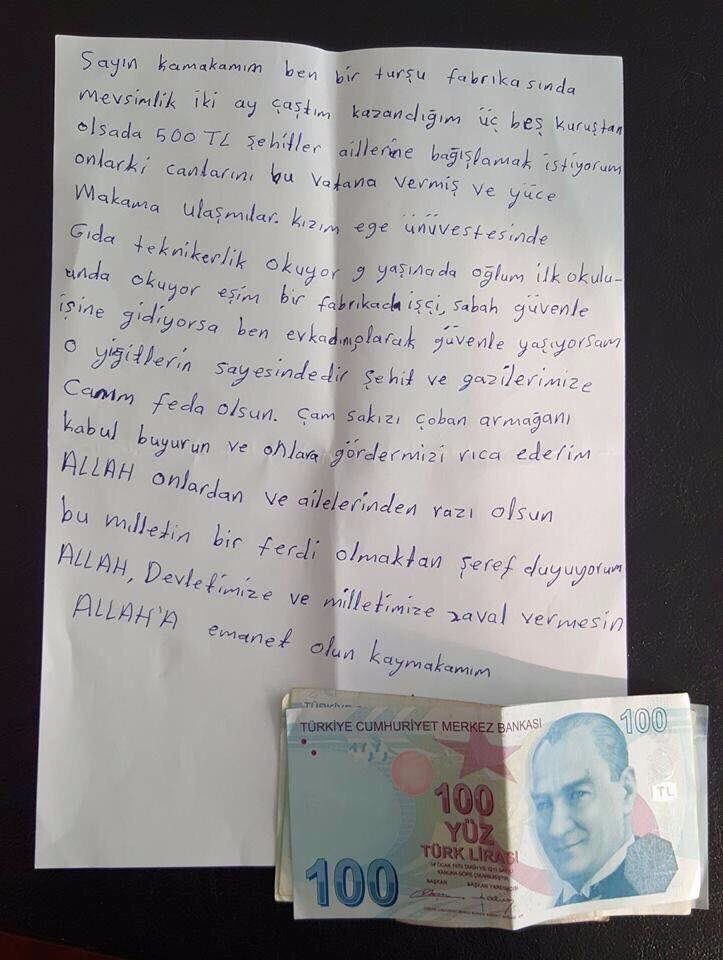 Sayın kamakamım ben bir turşu fabrikasında
mevsimlik iki ay çaştım kazandığım üç beş kuruştan
olsada 500 TL şehitler aillerine bağışlamak istiyorum
onlarki canlarını bu vatana vermiş ve yüce
Makama ulaşmılar. kızım ege ünüvestesinde
Gıda teknikerlik okuyor 9 yaşınada oğlum ilk okulu-
unda okuyor eşim bir fabrikada işçi, sabah güvenle
işine gidiyorsa ben evkadınıolarak güvenle yaşıyorsam
o yiğitlerin sayesindedir şehit ve gazilerimize
Canım feda olsun. Çam sakızı çoban armağanı
kabul buyurun ve onlara gördermizi rica ederim
ALLAH onlardan ve ailelerinden razı olsun
bu milletin bir ferdi olmaktan şeref duyuyorum
ALLAH, Devletimize ve milletimize zaval vermesin
ALLAH'A emanet olun kaymakamım
TÜRKİYE CUMHURİYET MERKEZ BANKASI
100
TL
100
YÜZ
TÜRK LİRASI
100